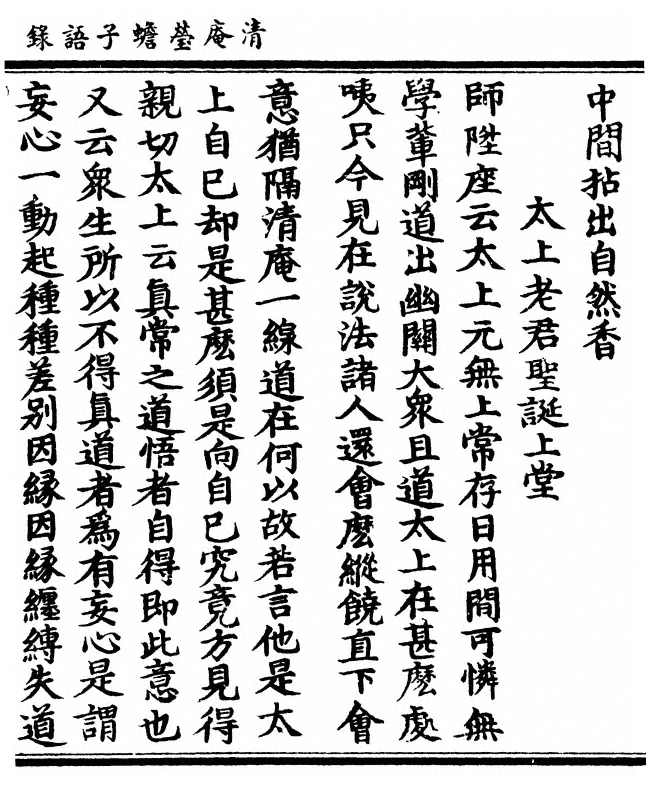 清庵瑩蟾子語錄
中間拈出自然香
太上老君聖誕上堂
師陞座云太上元無上常存日用間可憐無
學輩剛道出幽關大衆且道太上在甚麽處
咦只今見在說法諸人還會麽縱饒直下會
意猶隔清庵一線道在何以故若言他是太
上自已却是甚麽須是向自已究竟方見得
親切太上云眞常之道悟者自得即此意也
又云衆生所以不得眞道者爲有妄心是謂
妄心一動起種種差别因緣因緣纏縛失道